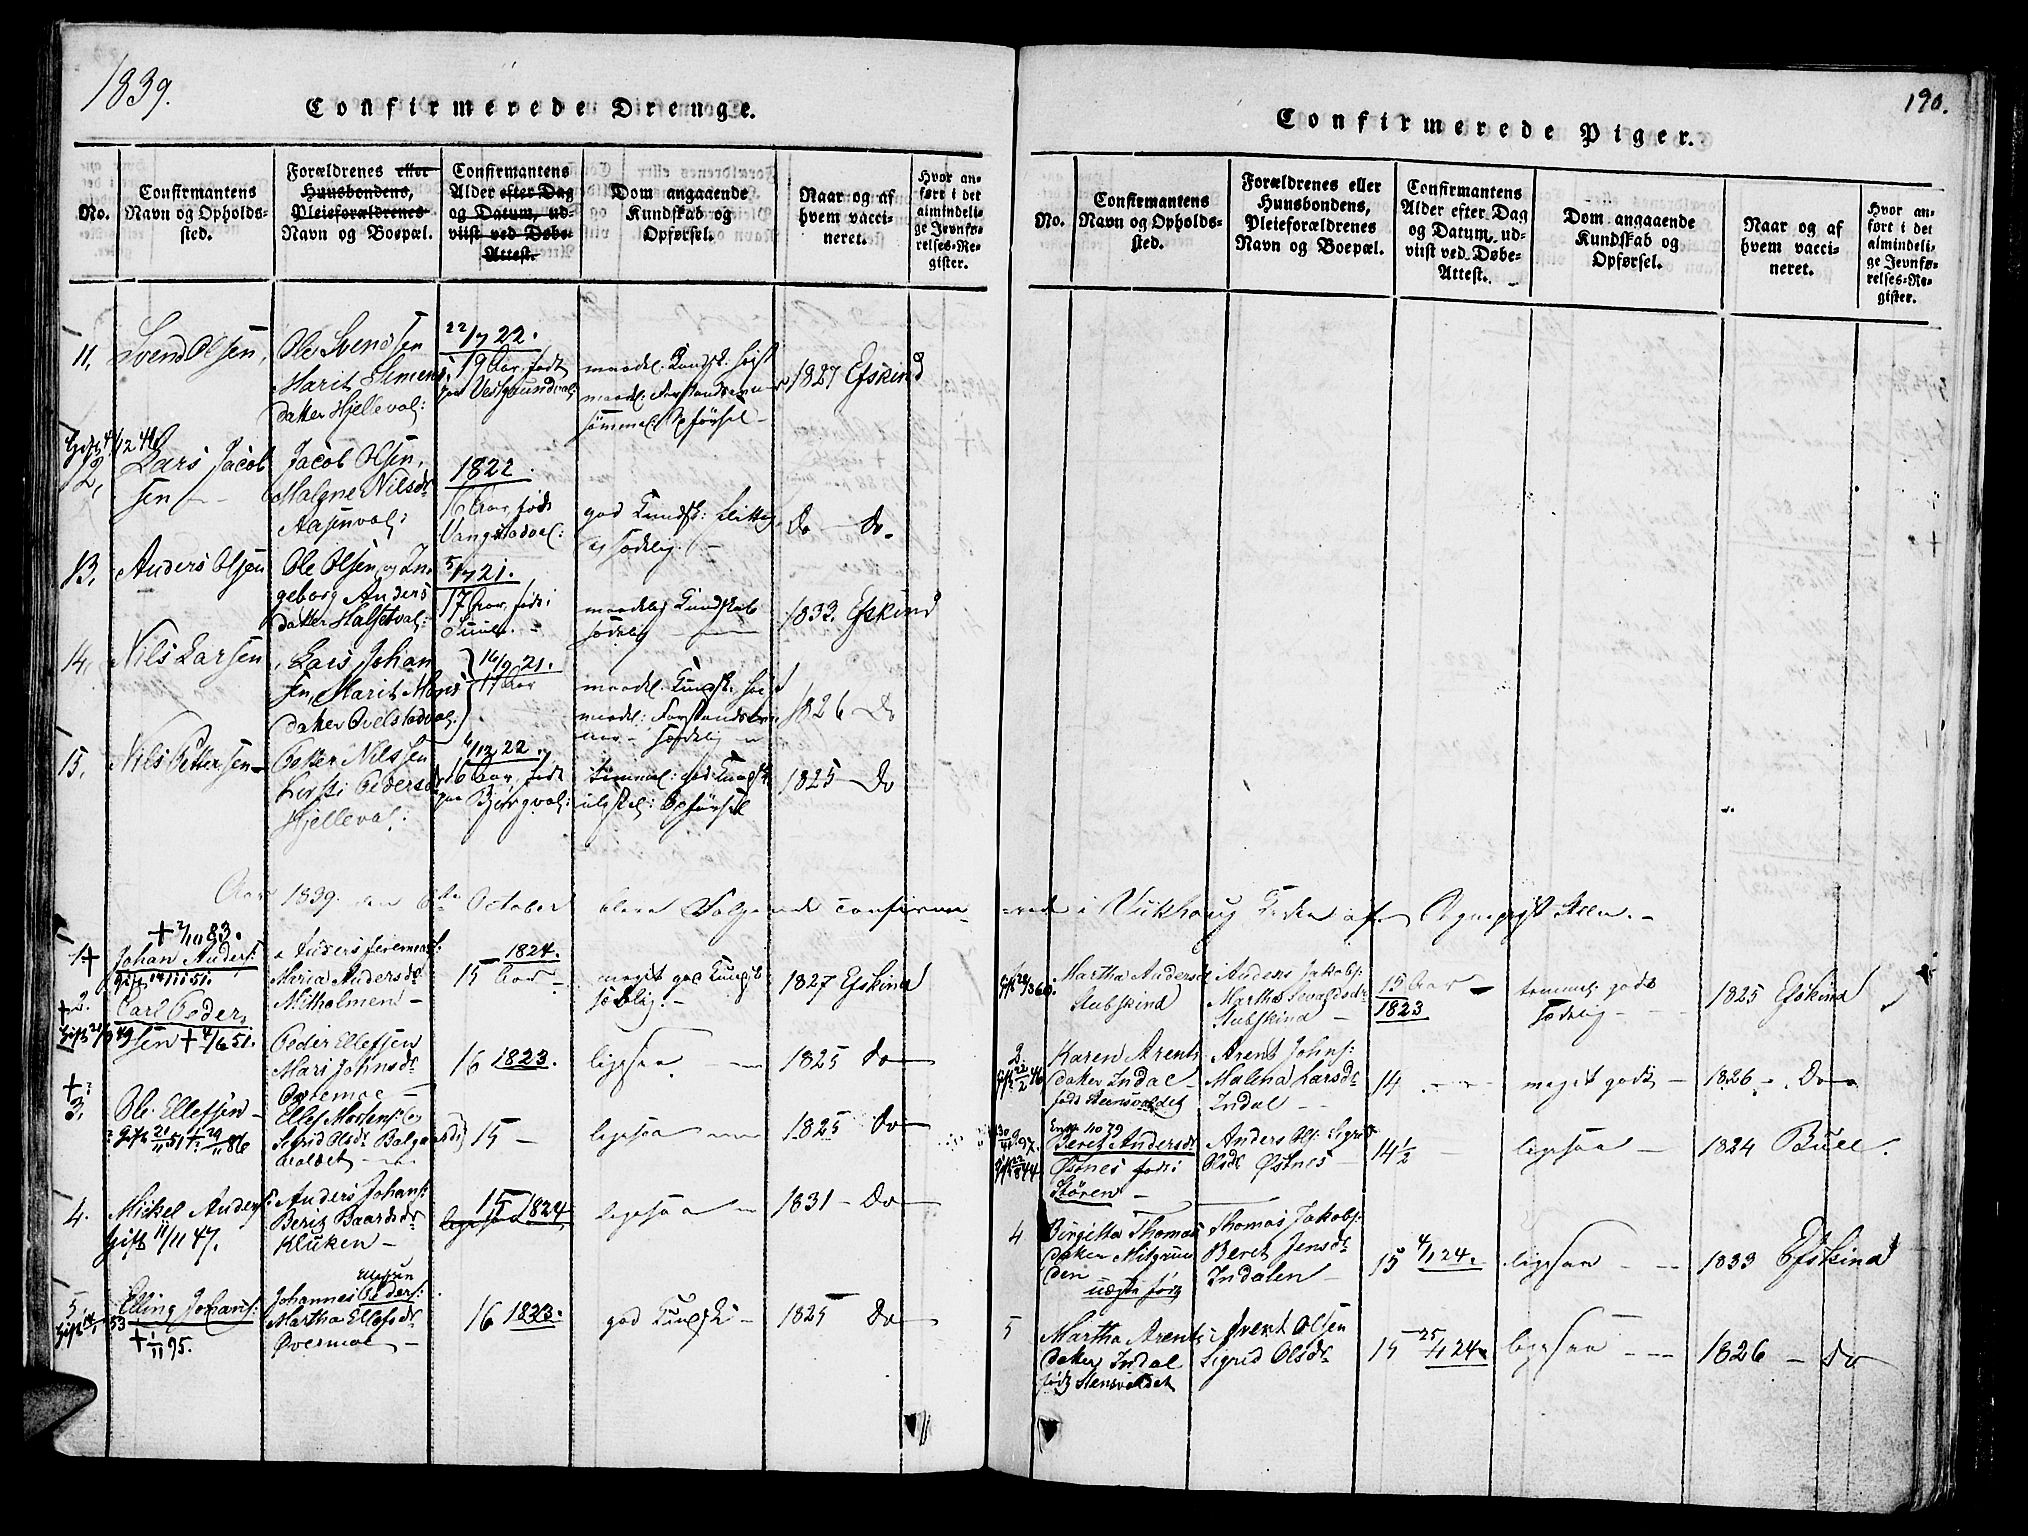 1839.
Confirmerede Drenge.
No.
Confirmantens
Navn og Opholds-
sted.
Forældrenes eller
Huusbondens,
Pleieforældrenes
Navn og Boepæl.
Confirmantens
Alder efter Dag
og Datum, ud-
viist ved Døbe-
Attest.
Dom angaaende
Kundskab og
Opførsel.
Naar og af
hvem vacci-
neret.
Hvor an-
ført i det
almindeli-
ge Jevnfø-
relses-Re-
gister.
11, Svend Olsen,
Ole Svendsen
Marit Simens
datter Hjelleval:
22/7 22.
19 Aar, født
paa Vestgrundval:
maadel. Kundsk. høist
maadel. Forstandsevner
sømmel. Opførsel
1827 Efskind
Gift
12, Lars Jacob
sen
Jacob Olsen,
Malene Nilsdr
Aasenval:
1822.
16 Aar, født
Vangstadval:
god Kundsk: flittig
sædelig.
Do Do.
13, Anders Olsen
Ole Olsen og In-
geborg Anders
datter Halsetval:
5/7 21.
17 Aar, født i
maadelig Kundskab
sædelig
1833. Efskind
14, Nils Larsen
Lars Johan
sen, Marit Mons
datter Ovelstadval:
16/9 21.
17 Aar
maadel. Kundsk. høist
maadel: Forstandsev-
ner sædelig
1826 Do
15, Nils Pettersen
Petter Nilssen
Kirsti Pedersdr
Hjelleval:
6/12 22.
16 Aar, født
paa Bjørgval:
temmel: god Kundsk
upstel: Opførsel
1825 Do
Aar 1839. den 6te October bleve Følgende confirme-
1 + + 2/10 83.
Johan Anders:
gift 14/11 51.
Anders Jeremias:
Maria Andersdr
Mitholmen
1824.
15 Aar
meget god Kundsk:
sædelig.
1827 Efskind
+ 2.
Carl Peder
sen + 4/6 51.
Peder Ellefsen
Mari Johnsdr
Overmoe
16 1823.
ligesaa
1825 Do
+?
3, Ole Ellefsen
Gift 21/11 51 +? 29/11 86
Ellef Mortens: og
Sigrid Olsdr Balgaards
valdet
15
ligesaa
1825 Do
4. Mikel Anders:
Gift 11/11 47.
Anders Johans:
Berit Baardsdr
Kluken
15 1824
ligesaa
ligesaa
1831 Do
5 Elling Johans:
+ 1/11 95.
Ellefsen
Johannes Peders:
Martha Ellefsdr
Overmoe
16 1823.
god Kundsk:
1825 Do
190.
Confirmerede Piger.
No.
Confirmantens
Navn og Opholds-
sted.
Forældrenes eller
Huusbondens,
Pleieforældrenes
Navn og Boepæl.
Confirmantens
Alder efter Dag
og Datum, ud-
viist ved Døbe-
Attest.
Dom angaaende
Kundskab og
Opførsel.
Naar og af
hvem vacci-
neret.
Hvor an-
ført i det
almindeli-
ge Jevnfø-
relses-Re-
gister.
rede i Vukhaug Kirke af Sognepræst Steen.
Martha Andersdr
Stubskind
Anders Jakobs:
Martha Sivaldsdr
Stubskind
15 Aar
1823
temmel: godt
sædelig
1825 Efskind
2 Karen Arents
datter Indal
født Stensvaldet
Arent Johns:
Malena Larsdr
Indal
14
meget godt
1826 Do
Enke 10 79
Beret Andersdr
Østnes født i
Støren
Anders Ols: Sigrid
Olsdr Østnes
14 1/2
ligesaa
1824 Buee.
4 Birgitta Thomas
datter Mitgrun
den
uægte født
Thomas Jakobs:
Beret Jensdr
Indalen
15 4/1 24.
ligesaa
1833 Efskind
5 Martha Arents
datter Indal
født Stensvaldet
Arent Olsen
Sigrid Olsdr
15 25/1 24.
ligesaa
1826 Do